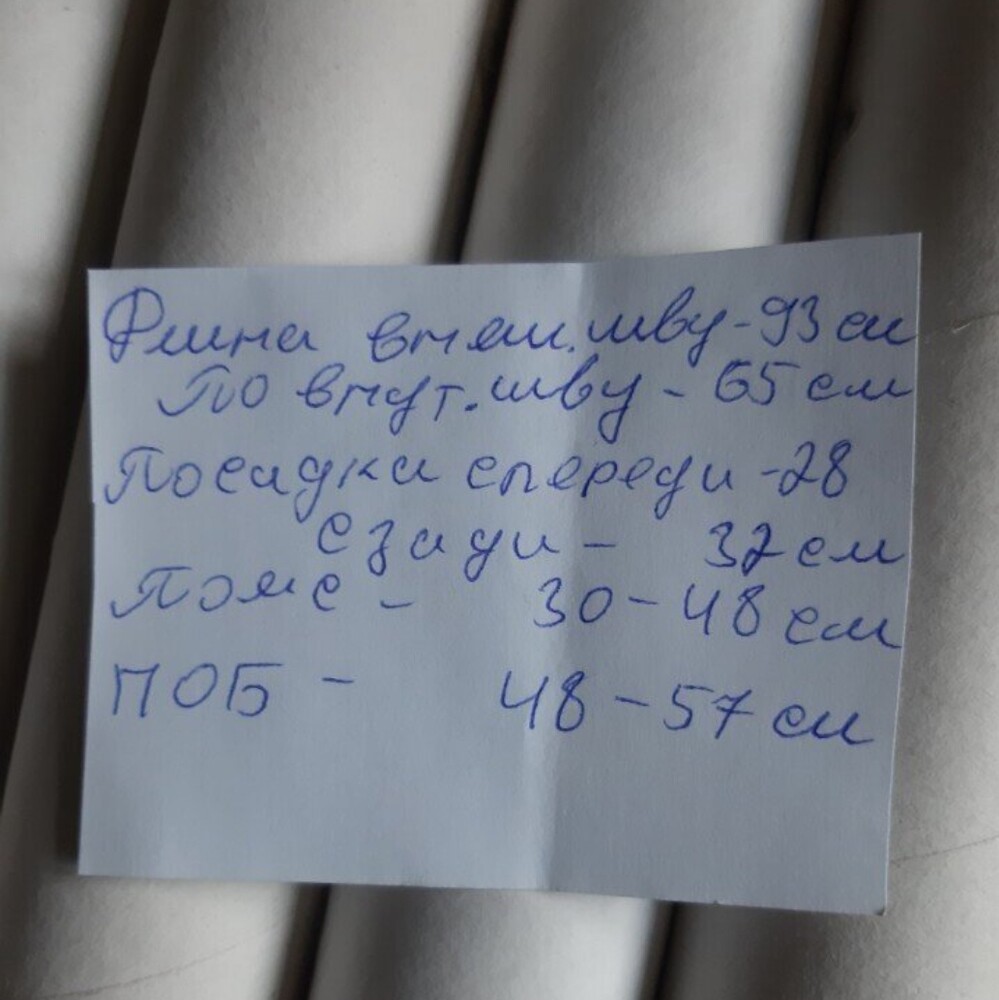 Длина внеш. шву - 93 см
По внут. шву - 65 см
Посадка спереди - 28
сзади - 32 см
Пояс - 30 - 48 см
ПОБ - 48 - 57 см